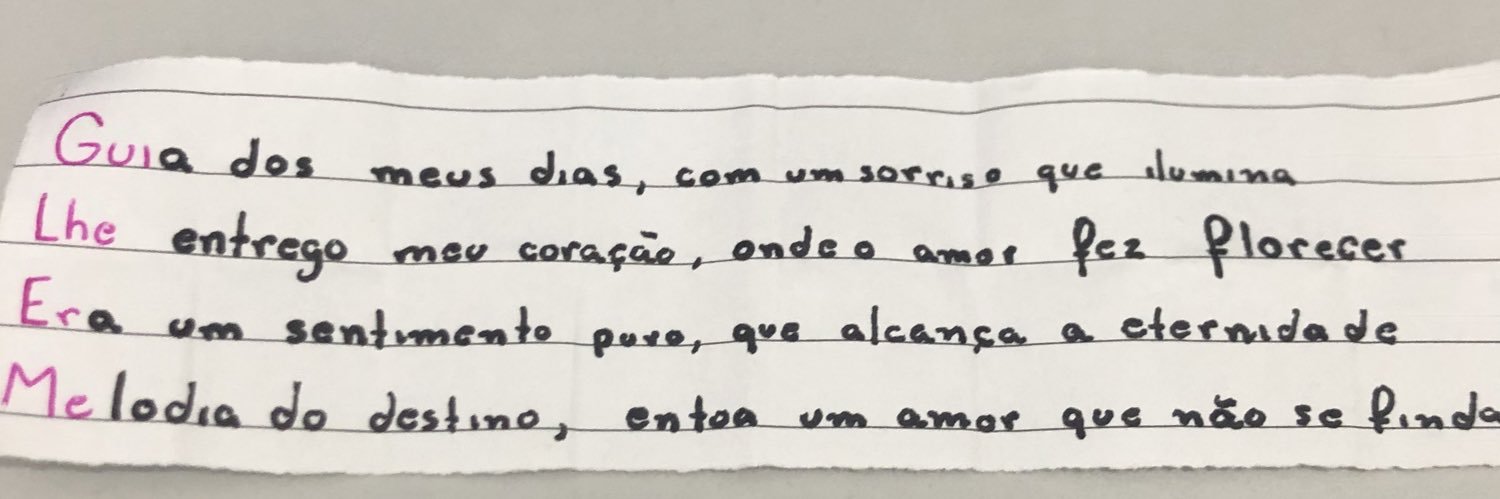 Guia dos meus dias, com um sorriso que ilumina
Lhe entrego meu coração, onde o amor fez florecer
Era um sentimento puro, que alcança a eternidade
Melodia do destino, entoa um amor que não se finda